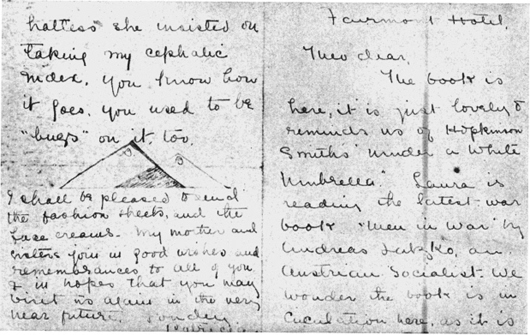 Fairmont Hotel,
Theo dear,
The book is
here, it is just lovely &
reminds us of Hopkinson
Smiths' "Under a White
Umbrella". Laura is
reading the latest war
book "Men in War" by
Andreas Latzko, an
Austrian Socialist. We
wonder the book is in
circulation here, as it is
hatless she insisted on
taking my cephalic
index, you know how
it goes, you used to be
"bugs" on it, too.
I shall be pleased to send
the fashion sheets, and the
face creams. My mother and
sisters join in good wishes and
remembrances to all of you
& in hopes that you may
visit us again in the very
near future. Fondly